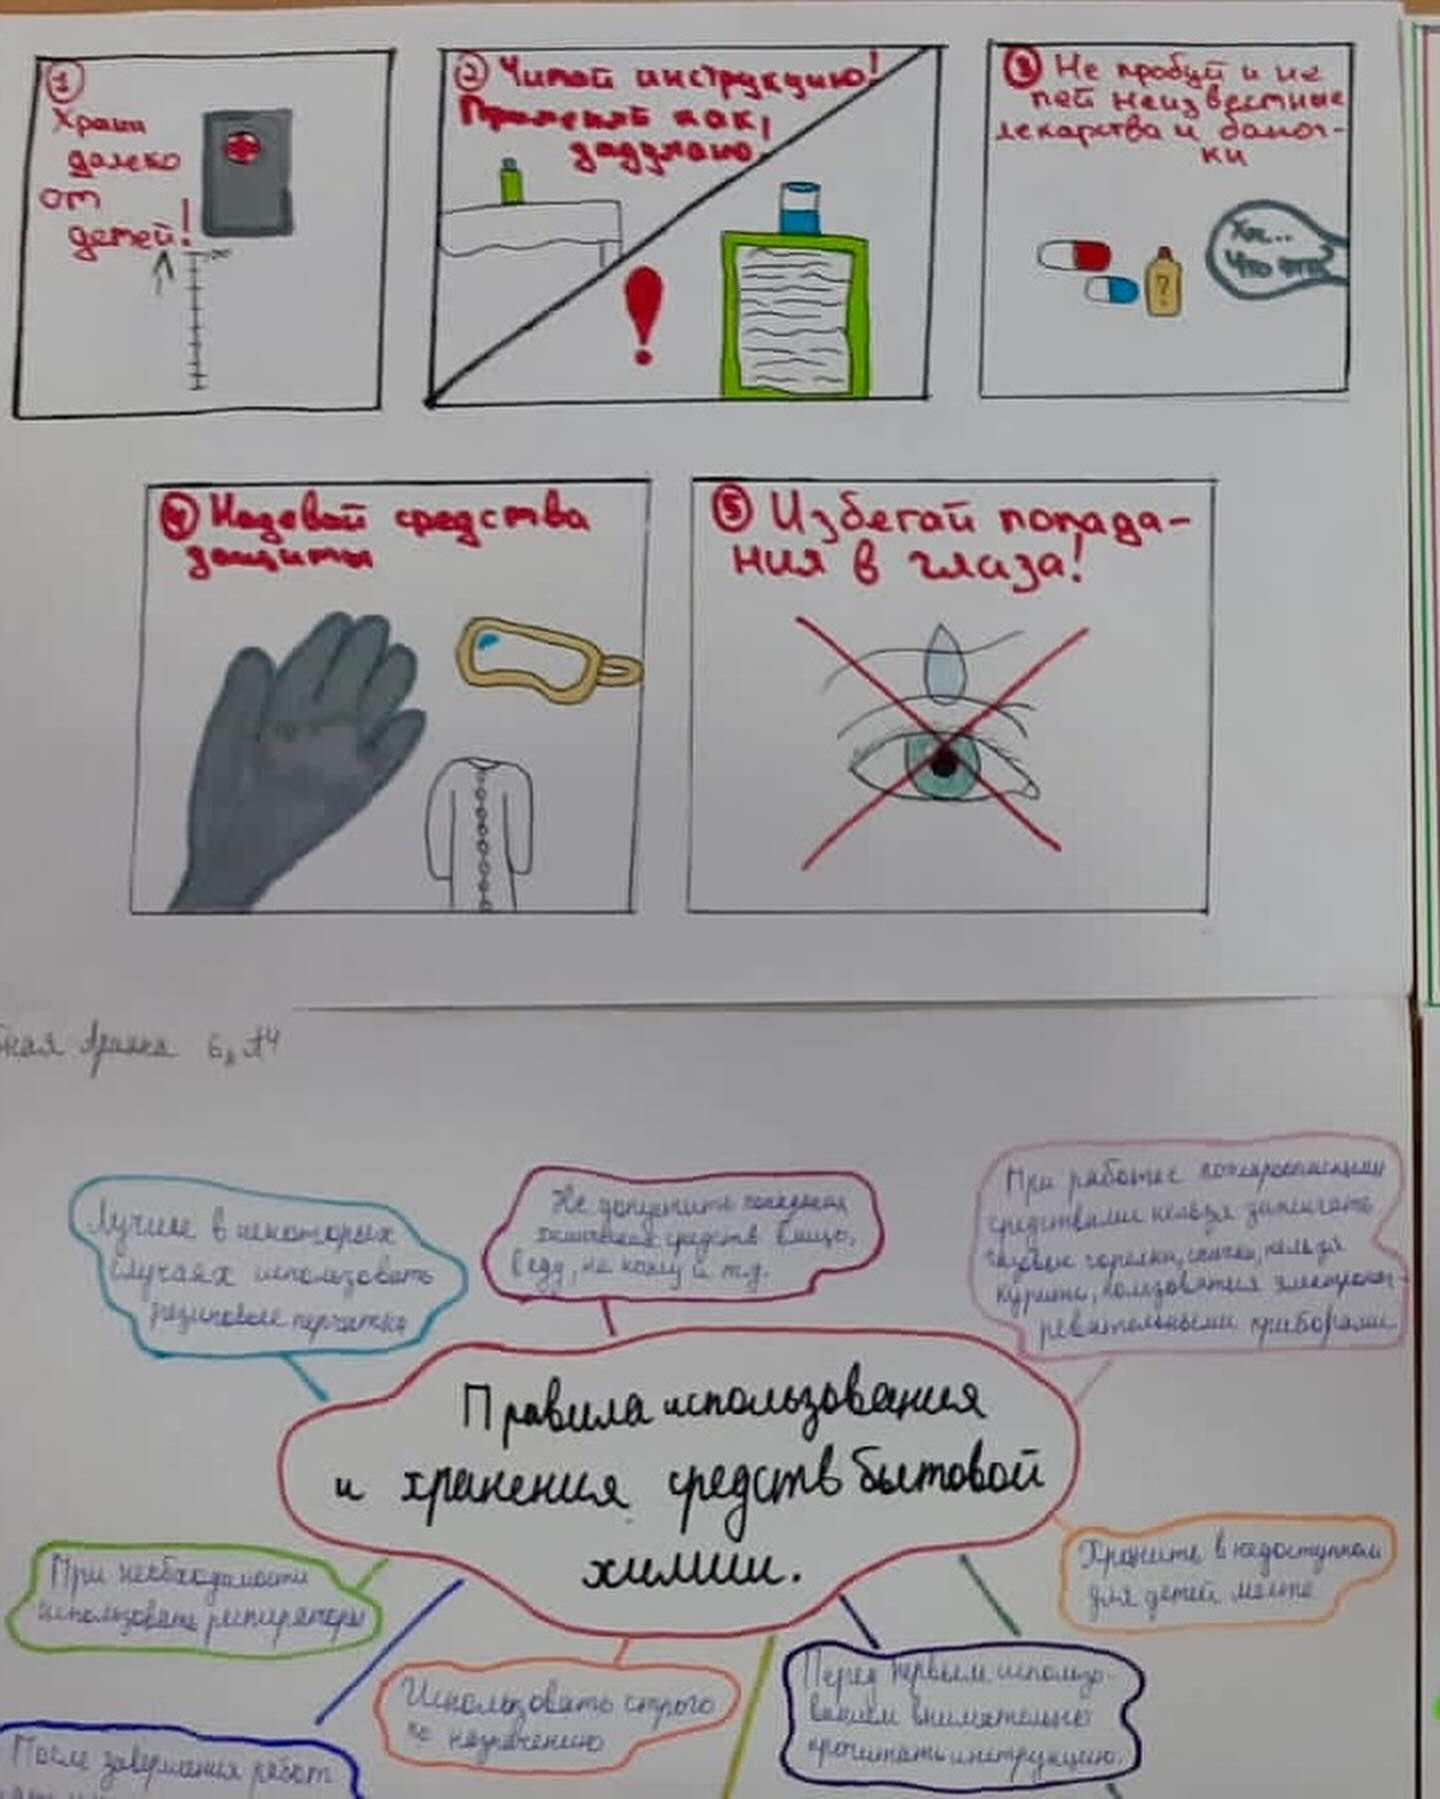 1
Храни
далеко
от
детей!
∞
2 Читай инструкцию!
Применяй как
задумано!
3 Не пробуй и не
пей неизвестные
лекарства и баноч-
ки
?
Хм...
Что это
4 Надевай средства
защиты
5 Избегай попада-
ния в глаза!
Лучше в некоторых
случаях использовать
резиновые перчатки
Не допустить попадания
химических средств в лицо,
в еду, на кожу и т.д.
При работе с пожароопасными
средствами нельзя зажигать
газовые горелки, спички, нельзя
курить, пользоватся электрона-
гревательными приборами.
Правила использования
и хранения средств бытовой
химии.
При необходимости
использовать респираторы
Хранить в недоступном
для детей месте
Использовать строго
по назначению
Перед первым использо-
ванием внимательно
прочитать инструкцию.
После завершения работ